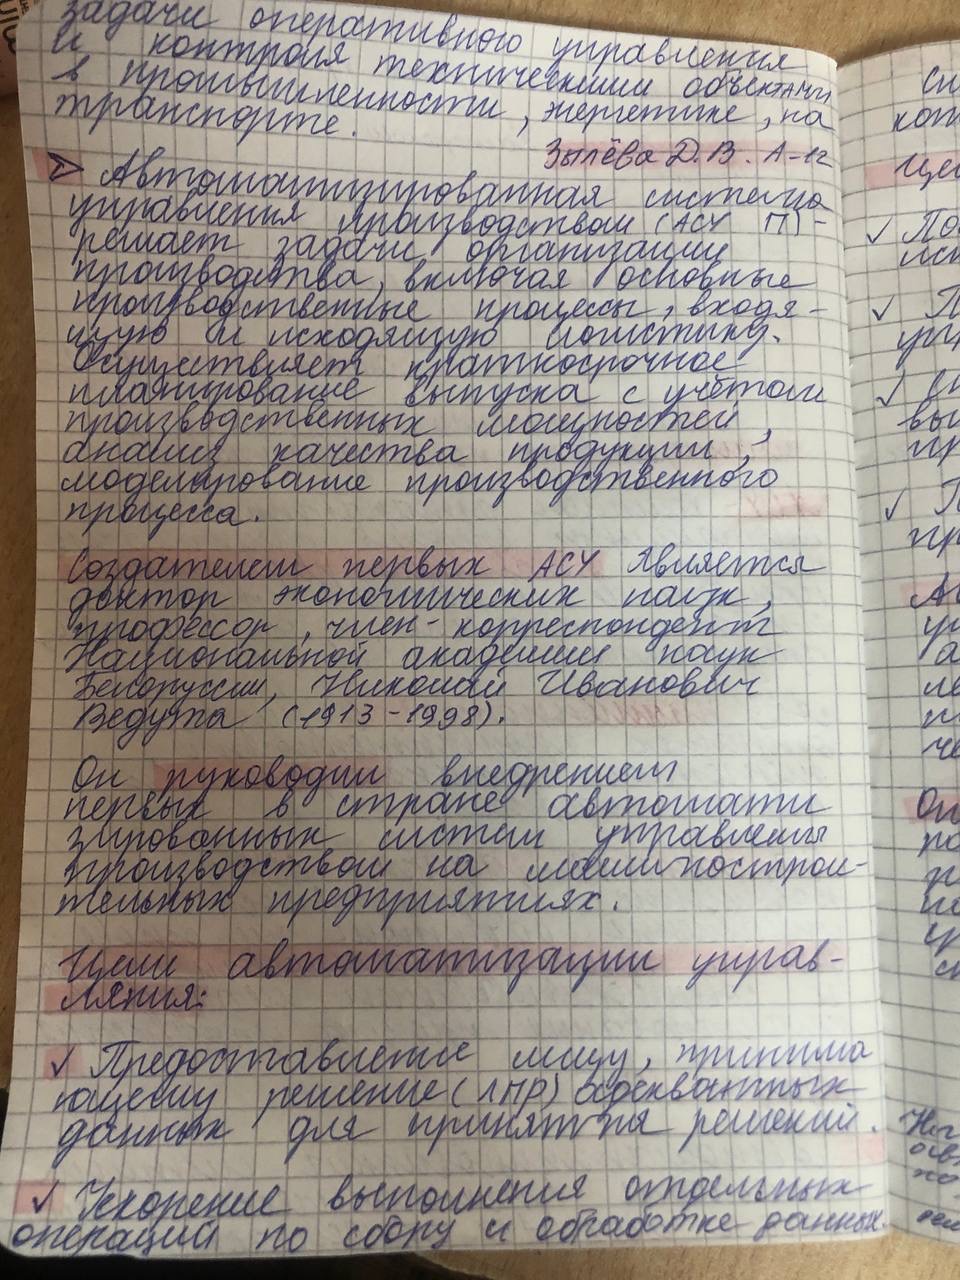 задачи оперативного управления
и контроля техническими объектами
в промышленности, энергетике, на
транспорте.
Зылёва Д.В. А-12
Автоматизированная система
управления производством (АСУ П) -
решает задачи организации
производства, включая основные
производственные процессы, входя-
щую и исходящую логистику.
Осуществляет краткосрочное
планирование выпуска с учётом
производственных мощностей,
анализ качества продукции,
моделирование производственного
процесса.
Создателем первых АСУ является
доктор экономических наук,
профессор, член-корреспондент
Национальной академии наук
Белоруссии, Николай Иванович
Ведута (1913-1998).
Он руководил внедрением
первых в стране автомати
зированных систем управления
производством на машинострои-
тельных предприятиях.
Цели автоматизации управ-
ления:
✓ Предоставление лицу, принима
ющему решение (ЛПР) адекватных
данных для принятия решений.
✓ Ускорение выполнения отдельных
операций по сбору и обработке данных.